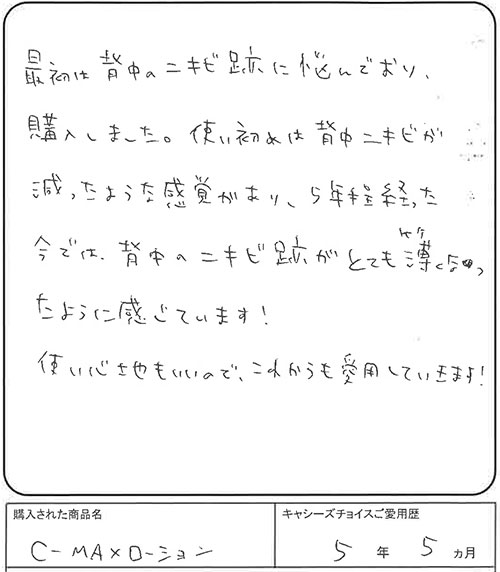 最初は背中のニキビ跡に悩んでおり、
購入しました。使い初めは背中ニキビが
減ったような感覚があり、5年程経った
今では、背中のニキビ跡がとても薄くなっ
たように感じています!
使い心地もいいので、これからも愛用していきます!
購入された商品名
キャシーズチョイスご愛用歴
C-MAXローション
5年 5ヵ月